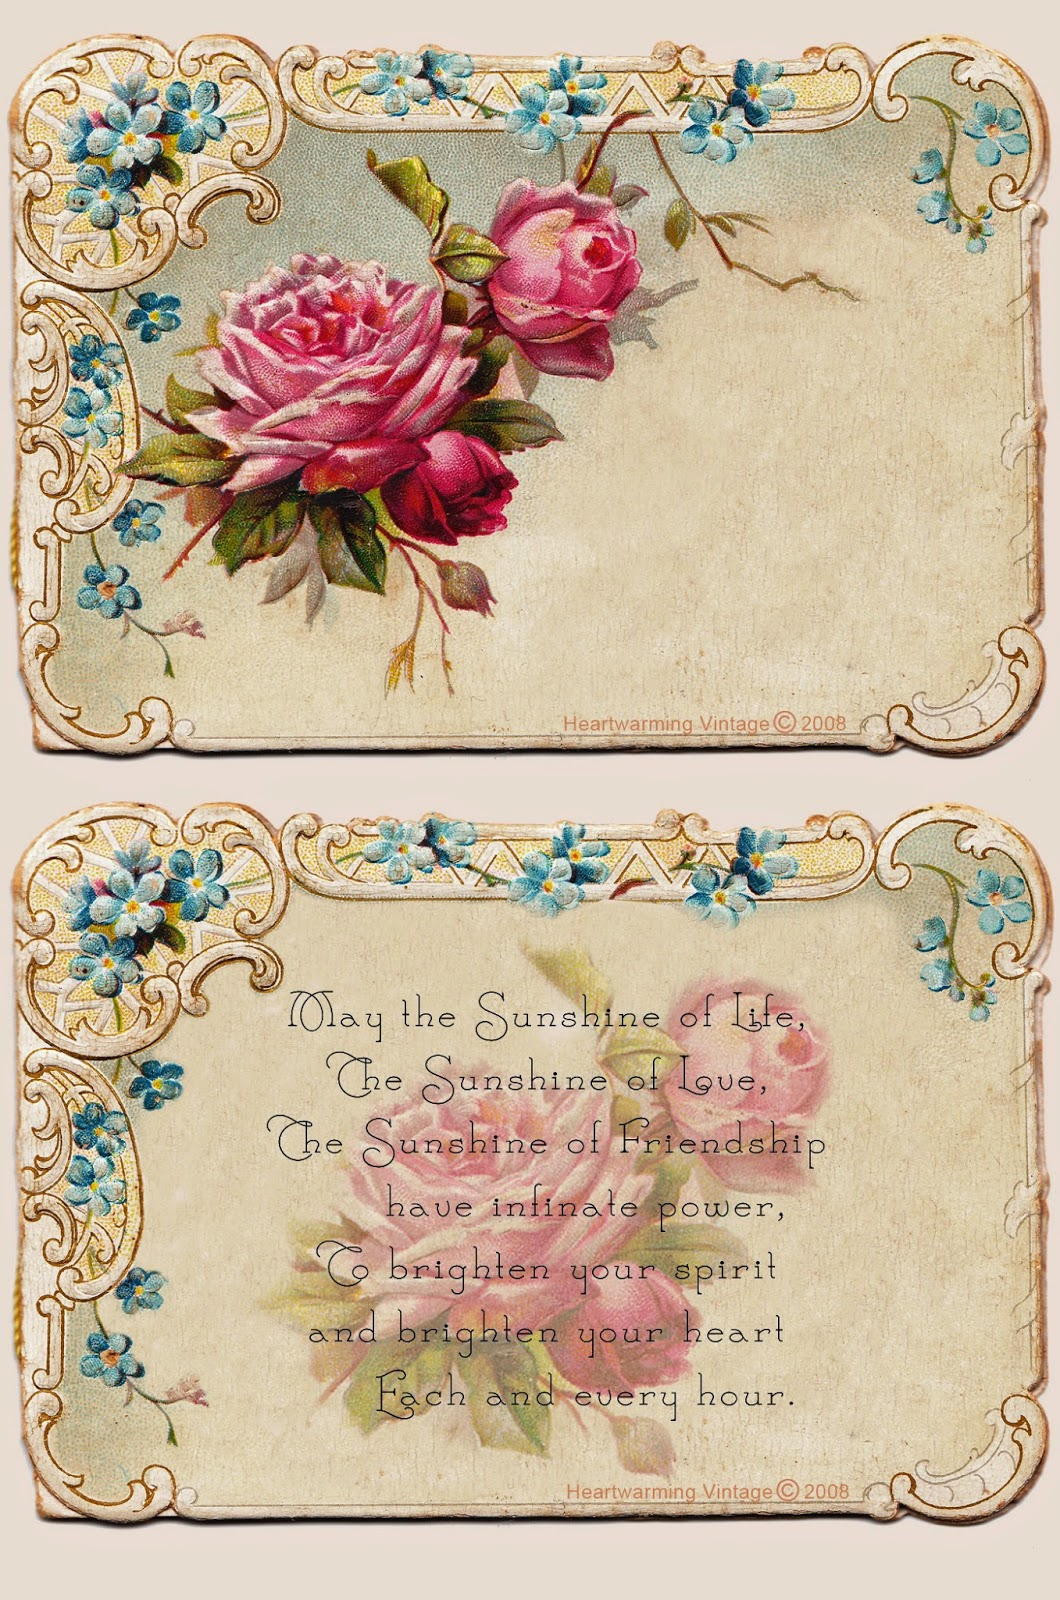 Heartwarming Vintage © 2008
May the Sunshine of Life,
The Sunshine of Love,
The Sunshine of Friendship
have infinate power,
To brighten your spirit
and brighten your heart
Each and every hour.
Heartwarming Vintage © 2008